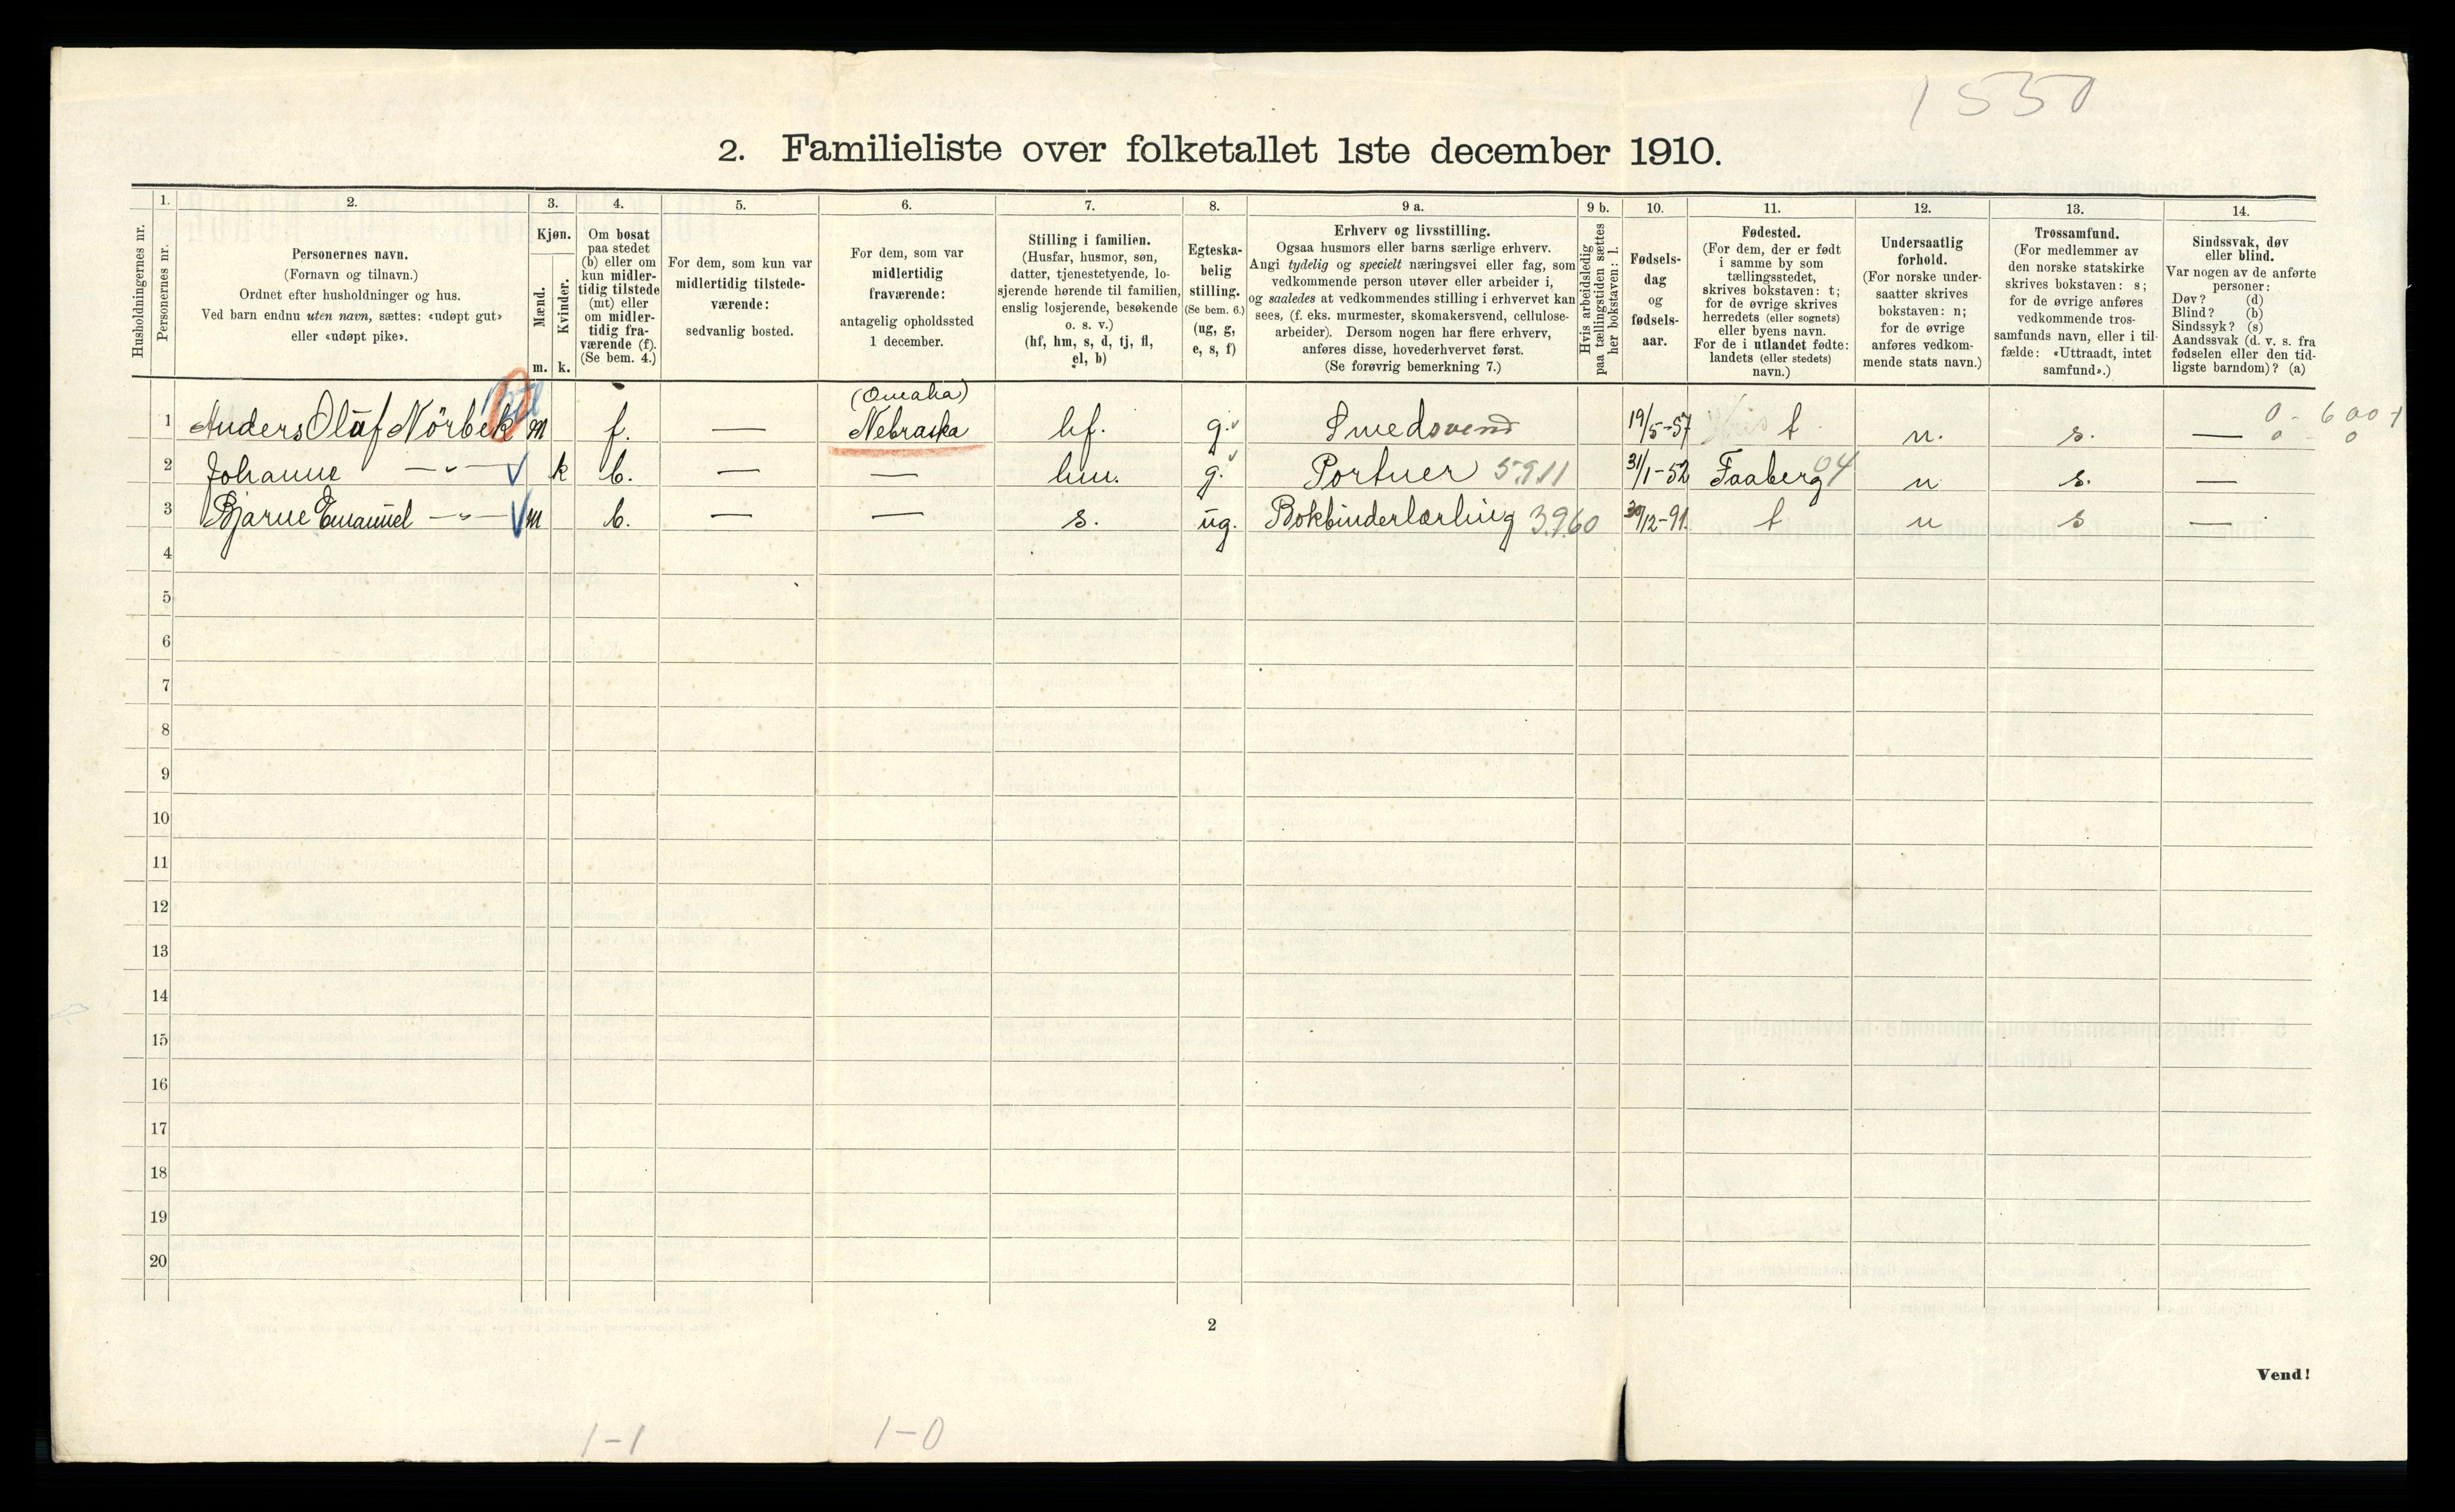 1550
2. Familieliste over folketallet 1ste december 1910.
Husholdningernes nr.
1.
Personernes nr.
2.
Personernes navn.
(Fornavn og tilnavn.)
Ordnet efter husholdninger og hus.
Ved barn endnu uten navn, sættes: «udøpt gut»
eller «udøpt pike».
3.
Kjøn.
Mænd.
Kvinder.
m. k.
4.
Om bosat
paa stedet
(b) eller om
kun midler-
tidig tilstede
(mt) eller
om midler-
tidig fra-
værende (f).
(Se bem. 4.)
5.
For dem, som kun var
midlertidig tilstede-
værende:
sedvanlig bosted.
6.
For dem, som var
midlertidig
fraværende:
antagelig opholdssted
1 december.
7.
Stilling i familien.
(Husfar, husmor, søn,
datter, tjenestetyende, lo-
sjerende hørende til familien,
enslig losjerende, besøkende
o. s. v.)
(hf, hm, s, d, tj, fl,
el, b)
8.
Egteska-
belig
stilling.
(Se bem. 6.)
(ug, g,
e, s, f)
9 a.
Erhverv og livsstilling.
Ogsaa husmors eller barns særlige erhverv.
Angi tydelig og specielt næringsvei eller fag, som
vedkommende person utøver eller arbeider i,
og saaledes at vedkommendes stilling i erhvervet kan
sees, (f. eks. murmester, skomakersvend, cellulose-
arbeider). Dersom nogen har flere erhverv,
anføres disse, hovederhvervet først.
(Se forøvrig bemerkning 7.)
9 b.
Hvis arbeidsledig
paa tællingstiden sættes
her bokstaven: l.
10.
Fødsels-
dag
og
fødsels-
aar.
11.
Fødested.
(For dem, der er født
i samme by som
tællingsstedet,
skrives bokstaven: t;
for de øvrige skrives
herredets (eller sognets)
eller byens navn.
For de i utlandet fødte:
landets (eller stedets)
navn.)
12.
Undersaatlig
forhold.
(For norske under-
saatter skrives
bokstaven: n;
for de øvrige
anføres vedkom-
mende stats navn.)
13.
Trossamfund.
(For medlemmer av
den norske statskirke
skrives bokstaven: s;
for de øvrige anføres
vedkommende tros-
samfunds navn, eller i til-
fælde: «Uttraadt, intet
samfund».)
14.
Sindssvak, døv
eller blind.
Var nogen av de anførte
personer:
Døv? (d)
Blind? (b)
Sindssyk? (s)
Aandssvak (d. v. s. fra
fødselen eller den tid-
ligste barndom)? (a)
1 Anders Olaf Nörbek m f. — (Omaha) Nebraska hf. g. Smedsvend 19/5-57 t n. s. — 0 - 600 +
0 0
2 Johanne —"— k b. — — hm. g. Portner 5911 31/1-52 Faaberg 04 n s. —
3 Bjarne Emanuel —"— m b. — — s. ug. Bokbinderlærling 3.9.60 30/12-91. t n s —
4
5
6
7
8
9
10
11
12
13
14
15
16
17
18
19
20
2
Vend!
1-1 1-0